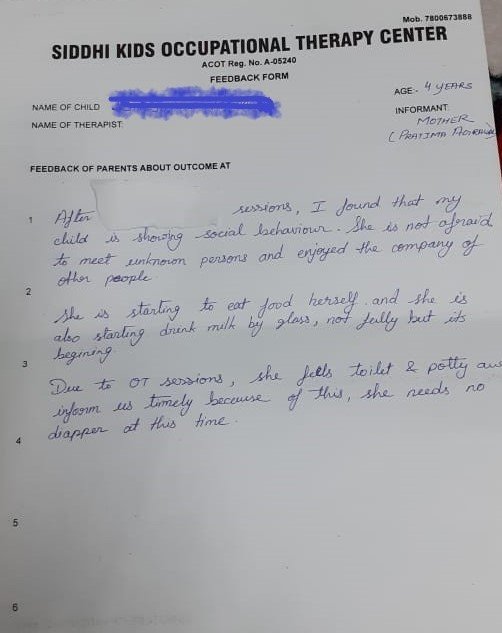 Mob. 7800673888
SIDDHI KIDS OCCUPATIONAL THERAPY CENTER
ACOT Reg. No. A-05240
FEEDBACK FORM
AGE:- 4 YEARS
NAME OF CHILD
INFORMANT:
MOTHER
NAME OF THERAPIST:
(PRATIMA
FEEDBACK OF PARENTS ABOUT OUTCOME AT
1 After sessions, I found that my
child is showing social behaviour. She is not afraid
to meet unknown persons and enjoyed the company of
other people
2
She is starting to eat food herself. and she is
also starting drink milk by glass, not fully but its
begining.
3
Due to OT sessions, she fells toilet & potty and
inform us timely because of this, she needs no
4 diapper at this time.
5
6